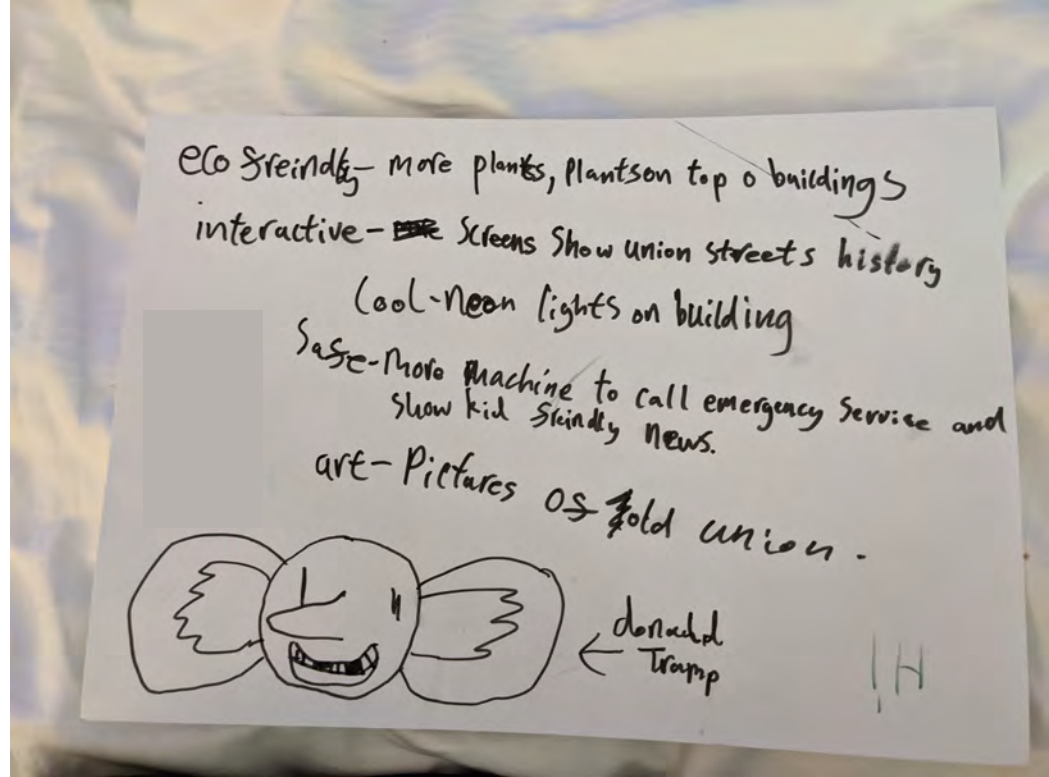 eco freindly - more plants, plantson top o buildings
interactive - screens show union streets history
Cool - neon lights on building
Safe - More machine to call emergency service and
show kid freindly news.
art - Pictures of old union.
donald
Tramp
1H